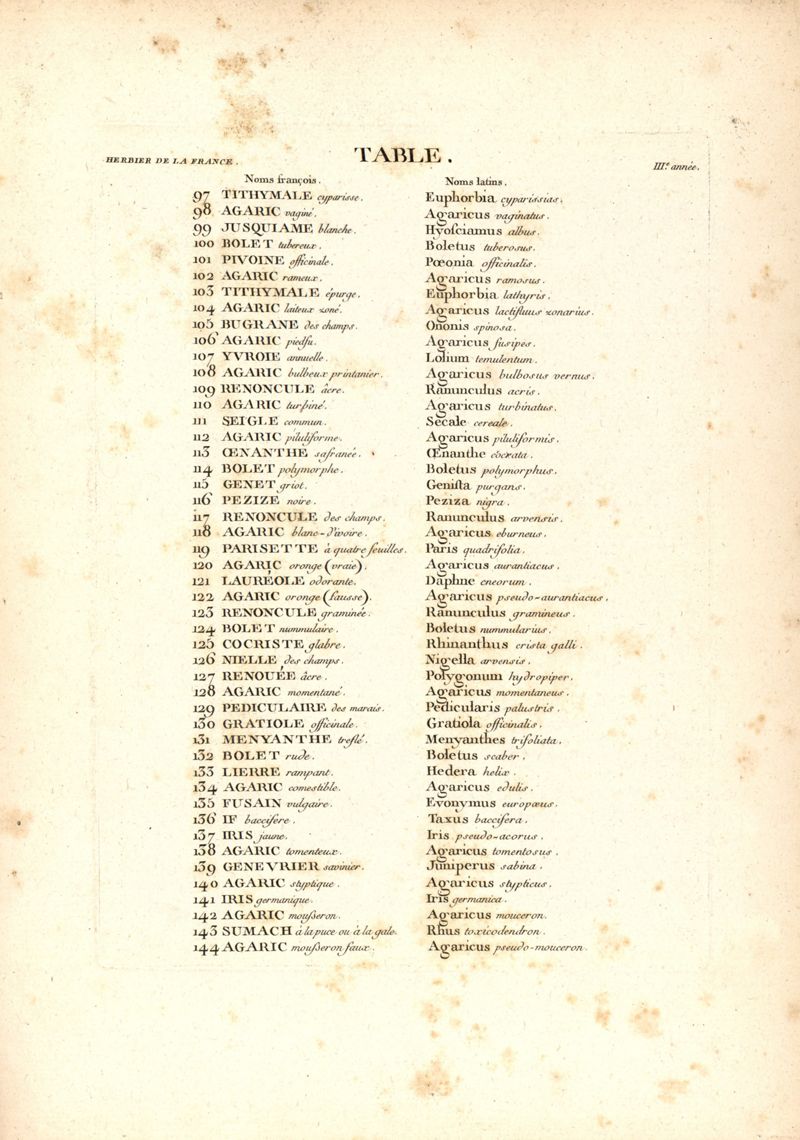 HERBIER DE LA FRANCE.
TABLE.
III.e année.
Noms françois. Noms latins.
97 TITHYMALE cyparisse. Euphorbia cyparissias.
98 AGARIC vaginé. Agaricus vaginatus.
99 JUSQUIAME blanche. Hyoſciamus albus.
100 BOLET tubereux. Boletus tuberosus.
101 PIVOINE officinale. Pœonia officinalis.
102 AGARIC rameux. Agaricus ramosus.
103 TITHYMALE épurge. Euphorbia lathyris.
104 AGARIC laiteux zoné. Agaricus lactifluus zonarius.
105 BUGRANE des champs. Ononis spinosa.
106 AGARIC piedfu. Agaricus fusipes.
107 YVROIE annuelle. Lolium temulentum.
108 AGARIC bulbeux printanier. Agaricus bulbosus vernus.
109 RENONCULE âcre. Ranunculus acris.
110 AGARIC turbiné. Agaricus turbinatus.
111 SEIGLE commun. Secale cereale.
112 AGARIC piluliforme. Agaricus piluliformis.
113 ŒNANTHE safranée. Œnanthe crocata.
114 BOLET polymorphe. Boletus polymorphus.
115 GENET griot. Geniſta purgans.
116 PEZIZE noire. Peziza nigra.
117 RENONCULE des champs. Ranunculus arvensis.
118 AGARIC blanc-d'ivoire. Agaricus eburneus.
119 PARISETTE à quatre feuilles. Paris quadrifolia.
120 AGARIC oronge (vraie). Agaricus aurantiacus.
121 LAURÉOLE odorante. Daphne cneorum.
122 AGARIC oronge (fausse). Agaricus pseudo-aurantiacus.
123 RENONCULE graminée. Ranunculus gramineus.
124 BOLET nummulaire. Boletus nummularius.
125 COCRISTE glabre. Rhinanthus crista galli.
126 NIELLE des champs. Nigella arvensis.
127 RENOUÉE âcre. Polygonum hydropiper.
128 AGARIC momentané. Agaricus momentaneus.
129 PEDICULAIRE des marais. Pedicularis palustris.
130 GRATIOLE officinale. Gratiola officinalis.
131 MENYANTHE treflé. Menyanthes trifoliata.
132 BOLET rude. Boletus scaber.
133 LIERRE rampant. Hedera helix.
134 AGARIC comestible. Agaricus edulis.
135 FUSAIN vulgaire. Evonymus europœus.
136 IF baccifère. Taxus baccifera.
137 IRIS jaune. Iris pseudo-acorus.
138 AGARIC tomenteux. Agaricus tomentosus.
139 GENEVRIER savinier. Juniperus sabina.
140 AGARIC styptique. Agaricus stypticus.
141 IRIS germanique. Iris germanica.
142 AGARIC moußeron. Agaricus mouceron.
143 SUMACH à la puce ou à la gale. Rhus toxicodendron.
144 AGARIC moußeron faux. Agaricus pseudo-mouceron.